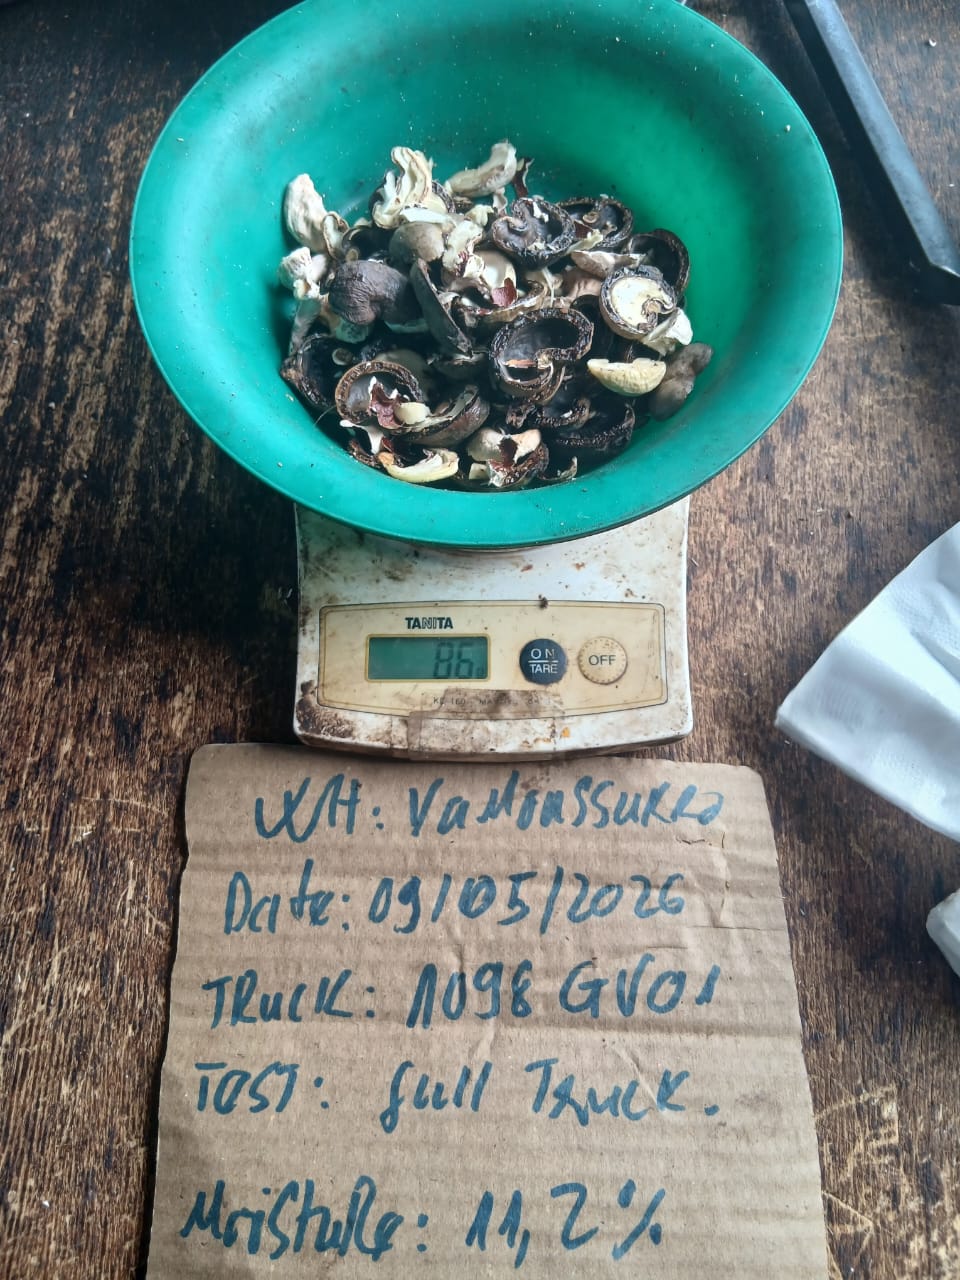 TANITA
86
ON
TARE
OFF
WH: Yamoussukro
Date: 09/05/2026
TRUCK: 1098 GV01
TEST: full Truck.
Moisture: 11,2%